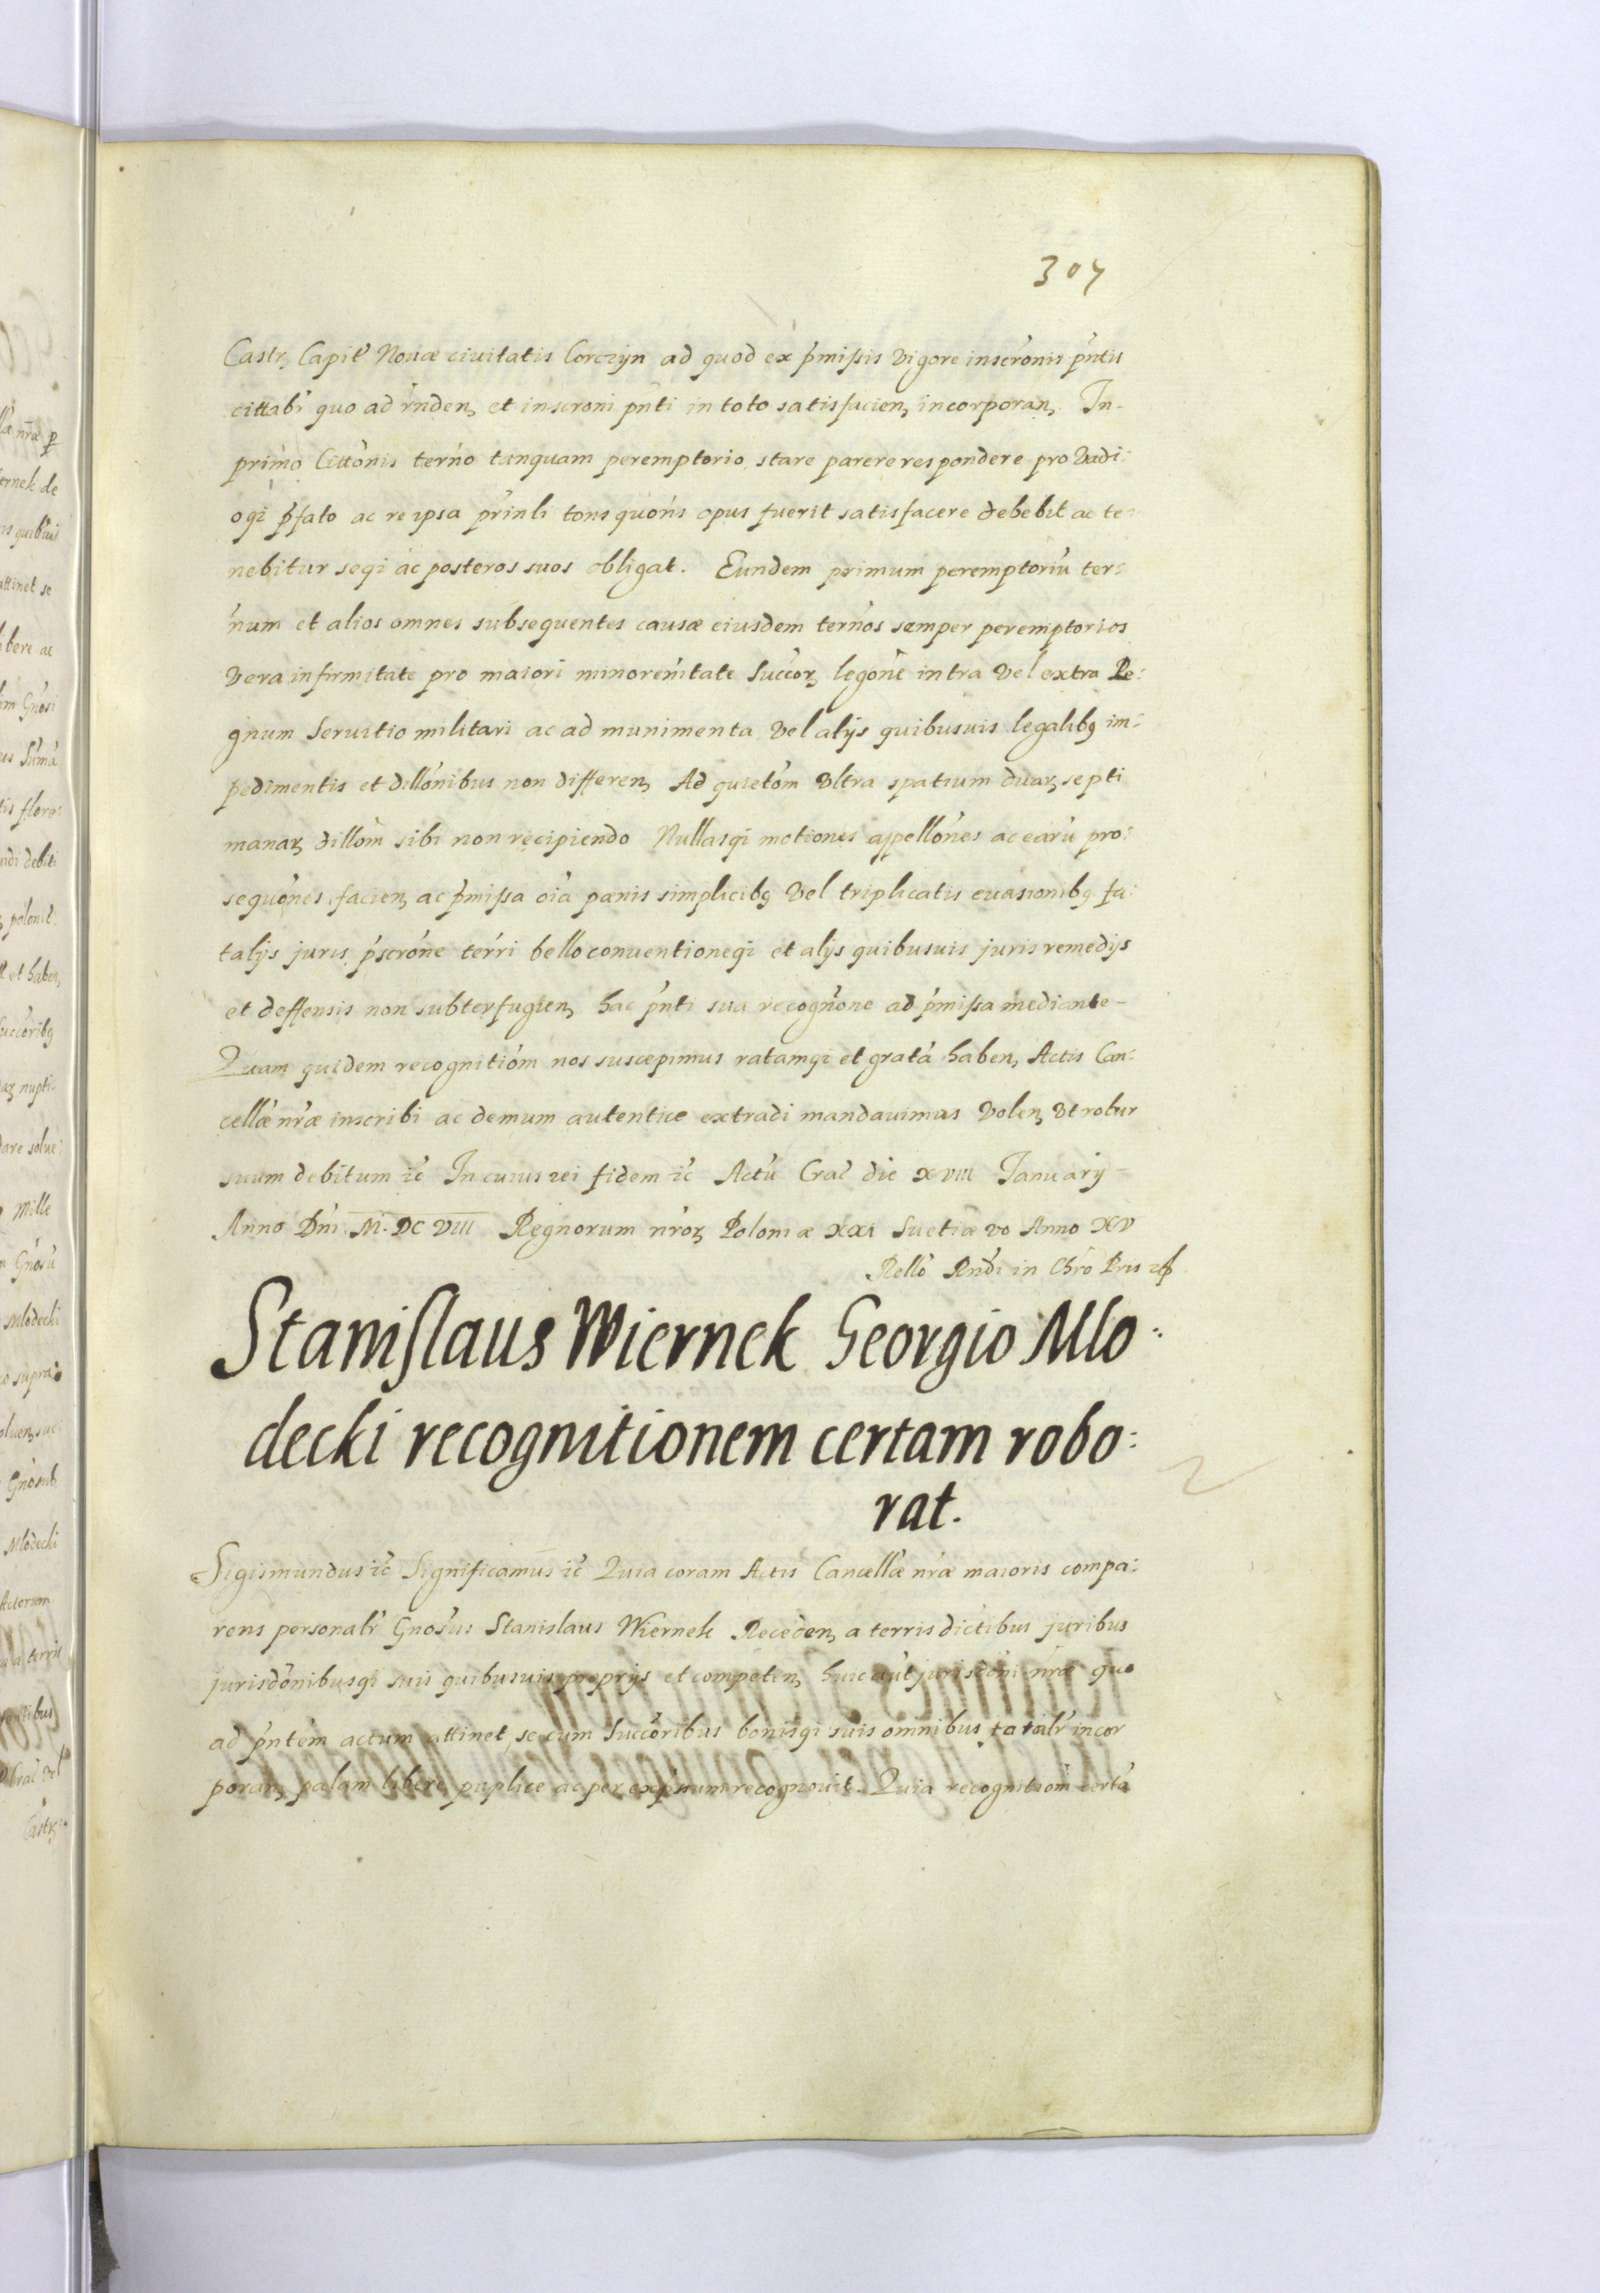 307
Castr, Capit' Nouæ ciuitatis Corczÿn ad quod ex p'missis vigore inscr'onis p'ntis
cittabi' quo ad r'nden, et inscroni p'nti in toto satisfacien, incorporan, In-
primo Citto'nis ter'no tanquam peremptorio stare parere respondere pro vadi:
oq3 p'fato ac re ipsa pr'inli opus fuerit satisfacere debebit ac te:
nebitur seq3 ac posteros suos obligat. Eundem primum peremptoriu' ter:
'num et alios omnes subsequentes causæ eiusdem ter'nos semper peremptorios
vera infirmitate pro maiori minoren'itate Succor, lego'ne intra vel extra Re:
gnum Seruitio militari ac ad munimenta vel alijs quibusuis legalib9 im:
pedimentis et dillo'nibus non differen, Ad quieto'm vltra spatium duar, septi
manar, dillo'm sibi non recipiendo Nullasq3 motiones appello'nes ac earu' pro:
sequo'nes facien, ac p'missa oi'a pænis simplicib9 vel triplicatis euasionib9 fa:
talijs juris p'scro'ne ter'ri bello conuentioneq3 et alijs quibusuis juris remedijs
et deffensis non subterfugien, hac p'nti sua recogn'one ad p'missa mediante-
Quam quidem recognitio'm nos suscepimus ratamq3 et grata' haben, Actis Can:
cellæ n'ræ inscribi ac demum autentice extradi mandauimus volen, vt robur
suum debitum ic' In cuius rei fidem ic' Actu' Crac' die XVIII Januarij-
Anno D'ni M.DC VIII Regnorum n'ror, Poloniæ XXI Suetiæ vo Anno XV
Rello' Rndi' in Chr'o Pris
Stanislaus Wiernek Georgio Mlo:
decki recognitionem certam robo:
rat.
Sigismundus ic' Significamus ic' Quia coram Actis Cancellæ n'ræ maioris compa:
rens personalr' Gnosus Stanislaus Wiernek Receden, a terris dictibus juribus
jurisdo'nibusq3 suis quibusuis proprijs et competen, huic aut jurisdoni n'ræ quo
ad p'ntem actum attinet, se cum Succoribus bonisq3 suis omnibus totalr' incor
poran, palam libere puplice ac per exp'ssum recognouit. Quia recognitiom certa'